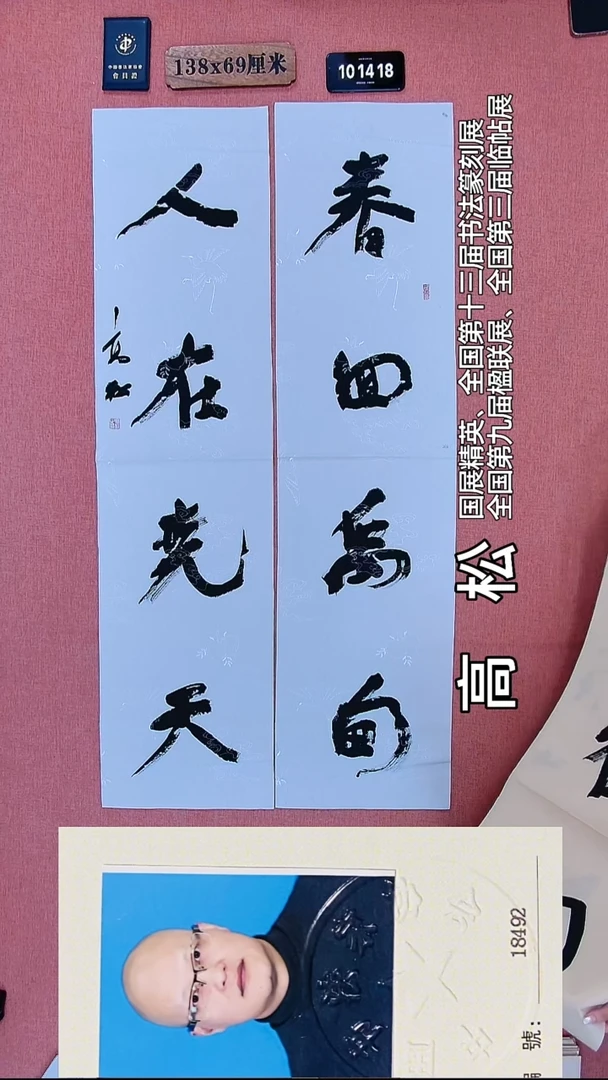 中国书法家协会
会員證
138x69厘米
10 14 18
春回禹甸
人在尧天
高松
国展精英、全国第十三届书法篆刻展
全国第九届楹联展、全国第三届临帖展
高 松
號：
18492